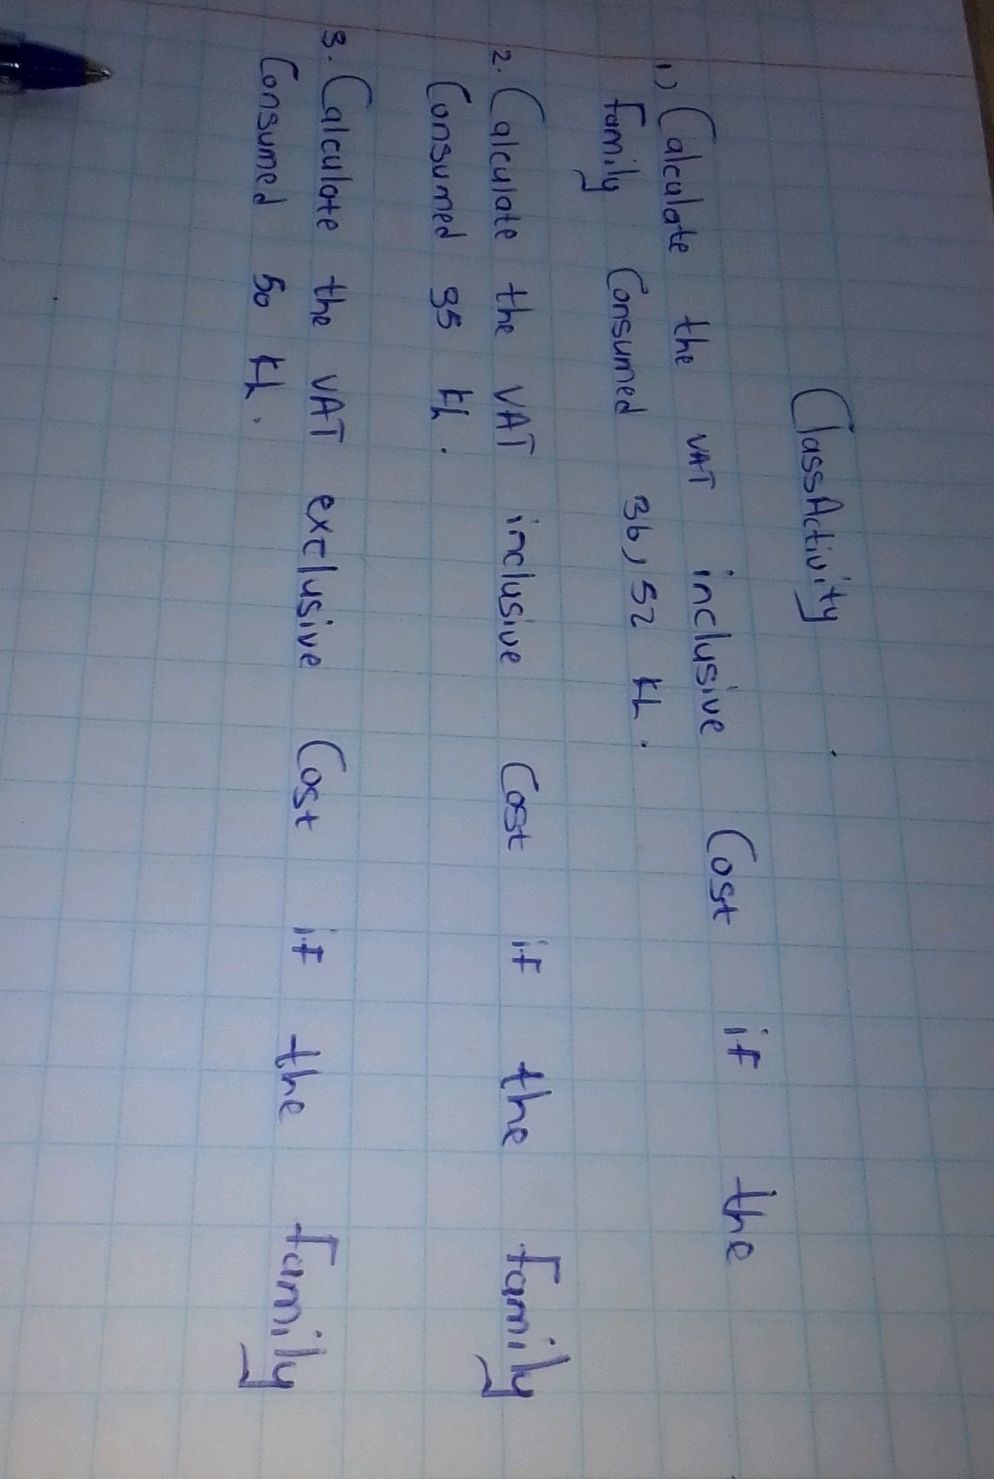 Class Activity
1) Calculate the VAT inclusive Cost if the
family Consumed 36,52 kL.
2. Calculate the VAT inclusive Cost if the family
Consumed 35 kL.
3. Calculate the VAT exclusive Cost if the family
Consumed 50 kL.